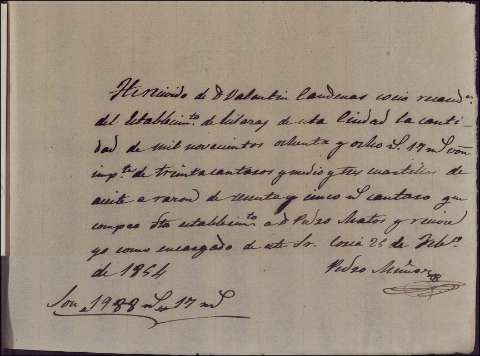 He recivido de Dn Valentin Cardenas como recaudor
del Establecimto de de esta Ciudad la canti-
dad de mil novecientos ochenta y ocho rs. 17 ms von
impte de treinta cantaros y medio y tres cuartillos de
aceite a razon de sesenta y cinco rs cantaro que
compro dho establecimto a Dn Pedro Matos y recivi
yo como encargado de este Sr. Coria 25 de Febo
de 1854
Pedro Muñoz
Son 1988 rs 17 ms